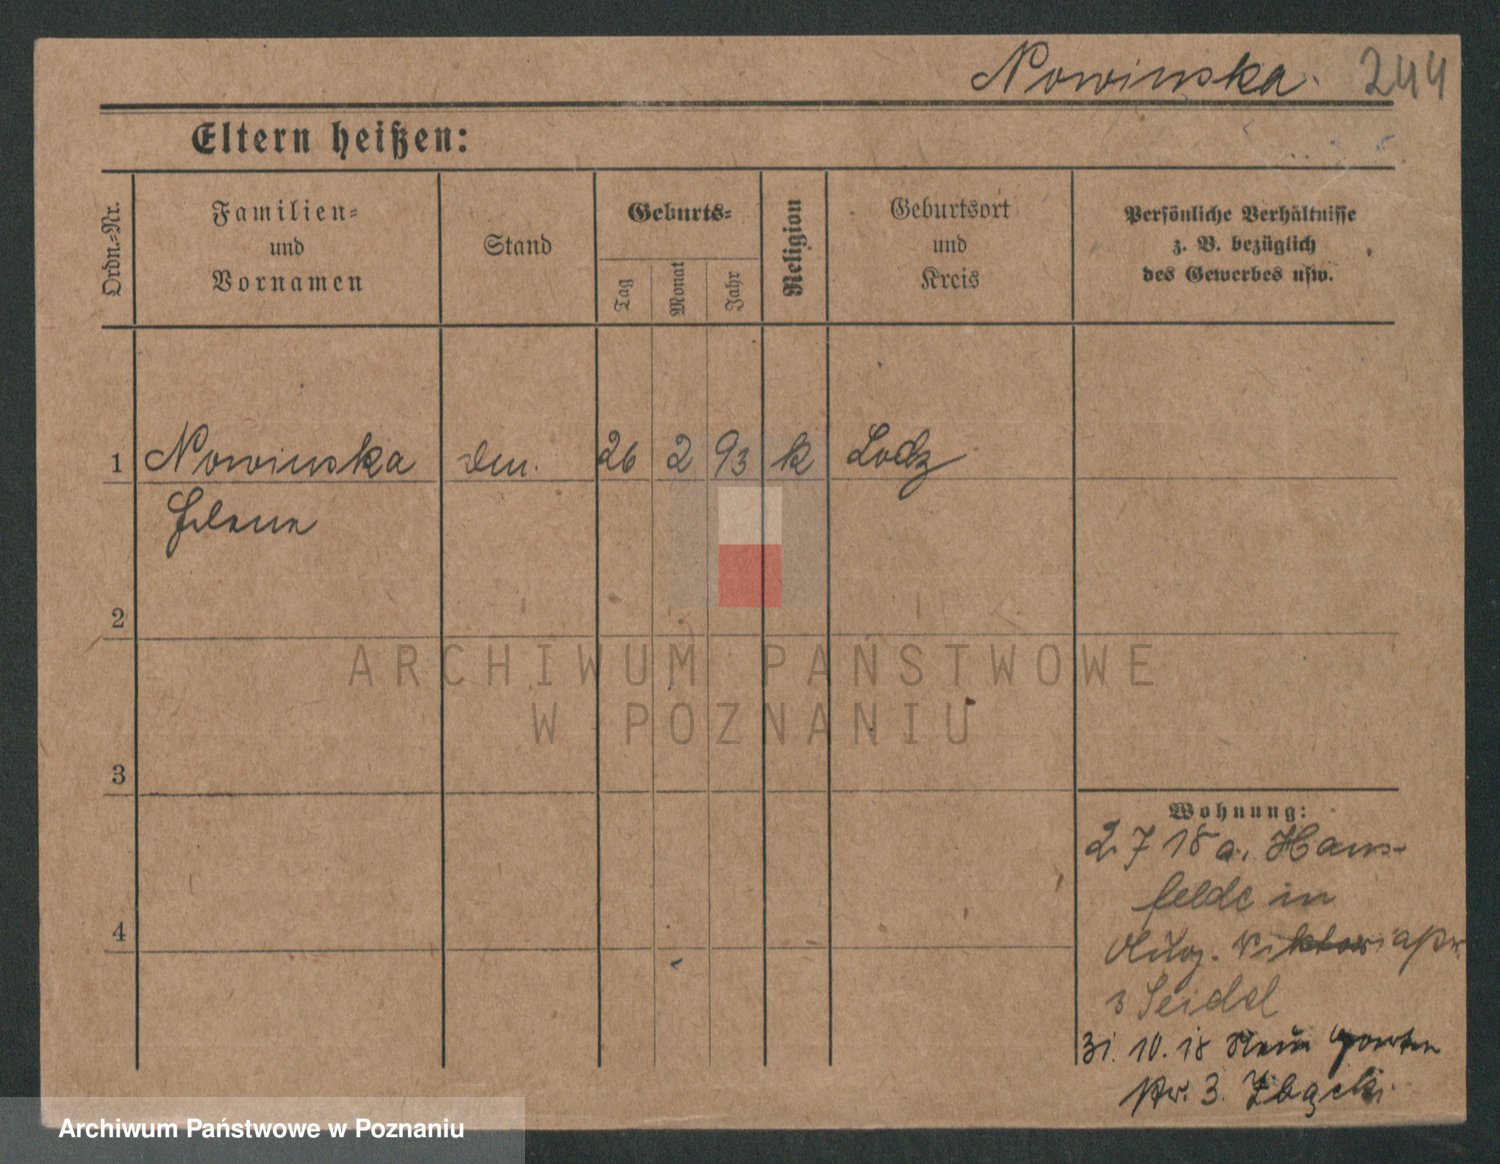 Nowinska. 244
Eltern heißen:
Ordn.-Nr.
Familien-
und
Vornamen
Stand
Geburts-
Tag
Monat
Jahr
Religion
Geburtsort
und
Kreis
Persönliche Verhältnisse
z. B. bezüglich
des Gewerbes usw.
1 Nowinska 26 2 93 k Lodz
Helene
2
3
4
ARCHIWUM PAŃSTWOWE
W POZNANIU
Wohnung:
2 7 18 a. Hans-
felde in
Aug. Viktoriastr
3 Seidel
31. 10. 18 Neue Garten
str. 3. Zbącki
Archiwum Państwowe w Poznaniu